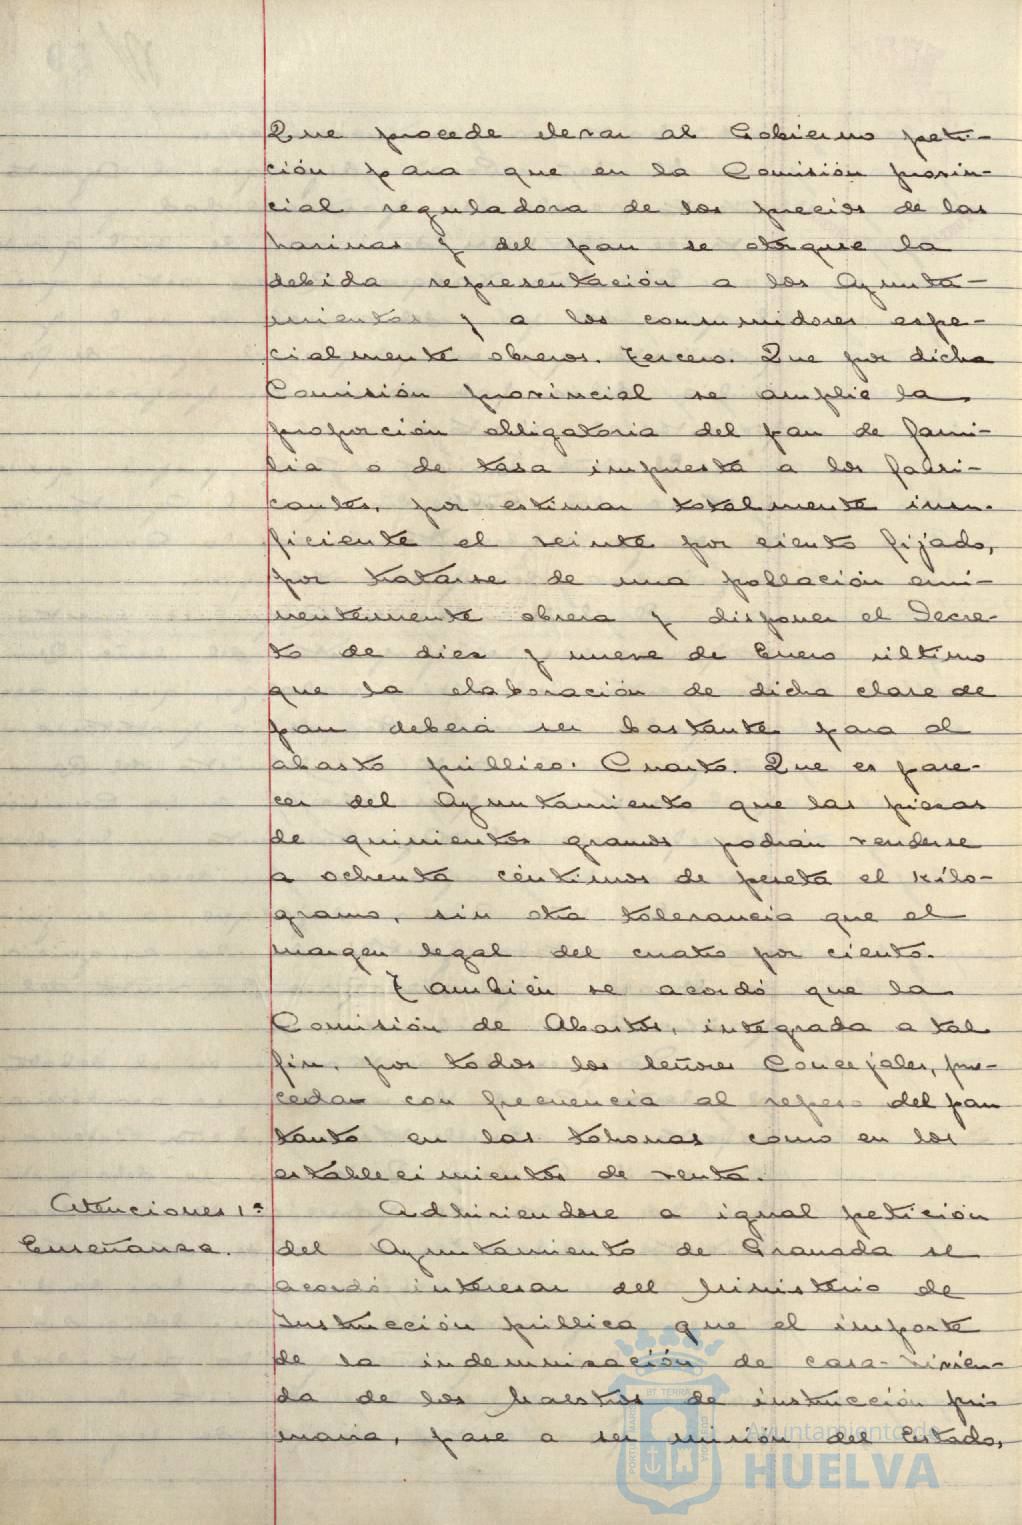 Que procede elevar al Gobierno peti-
ción para que en la Comisión provin-
cial reguladora de los precios de las
harinas y del pan se otorgue la
debida representación a los Ayunta-
mientos y a los consumidores espe-
cialmente obreros. Tercero. Que por dicha
Comisión provincial se amplie la
proporción obligatoria del pan de fami-
lia o de tasa impuesta a los fabri-
cantes, por estimar totalmente insu-
ficiente el veinte por ciento fijado,
por tratarse de una población emi-
nentemente obrera y disponer el Decre-
to de diez y nueve de Enero último
que la elaboración de dicha clase de
pan deberá ser bastante para el
abasto público. Cuarto. Que es pare-
cer del Ayuntamiento que las piezas
de quinientos gramos podrán venderse
a ochenta céntimos de peseta el kilo-
gramo, sin otra tolerancia que el
margen legal del cuatro por ciento.
También se acordó que la
Comisión de Abastos, integrada a tal
fin, por todos los señores Concejales, pro-
ceda con frecuencia al repeso del pan
tanto en las tahonas como en los
establecimientos de venta.
Atenciones 1ª Adhiriendose a igual petición
Enseñanza. del Ayuntamiento de Granada se
acordó interesar del Ministerio de
Instrucción pública que el importe
de la indemnización de casa-vivien-
da de los Maestros de instrucción pri-
maria, pase a ser misión del Estado,
Ayuntamiento de
HUELVA